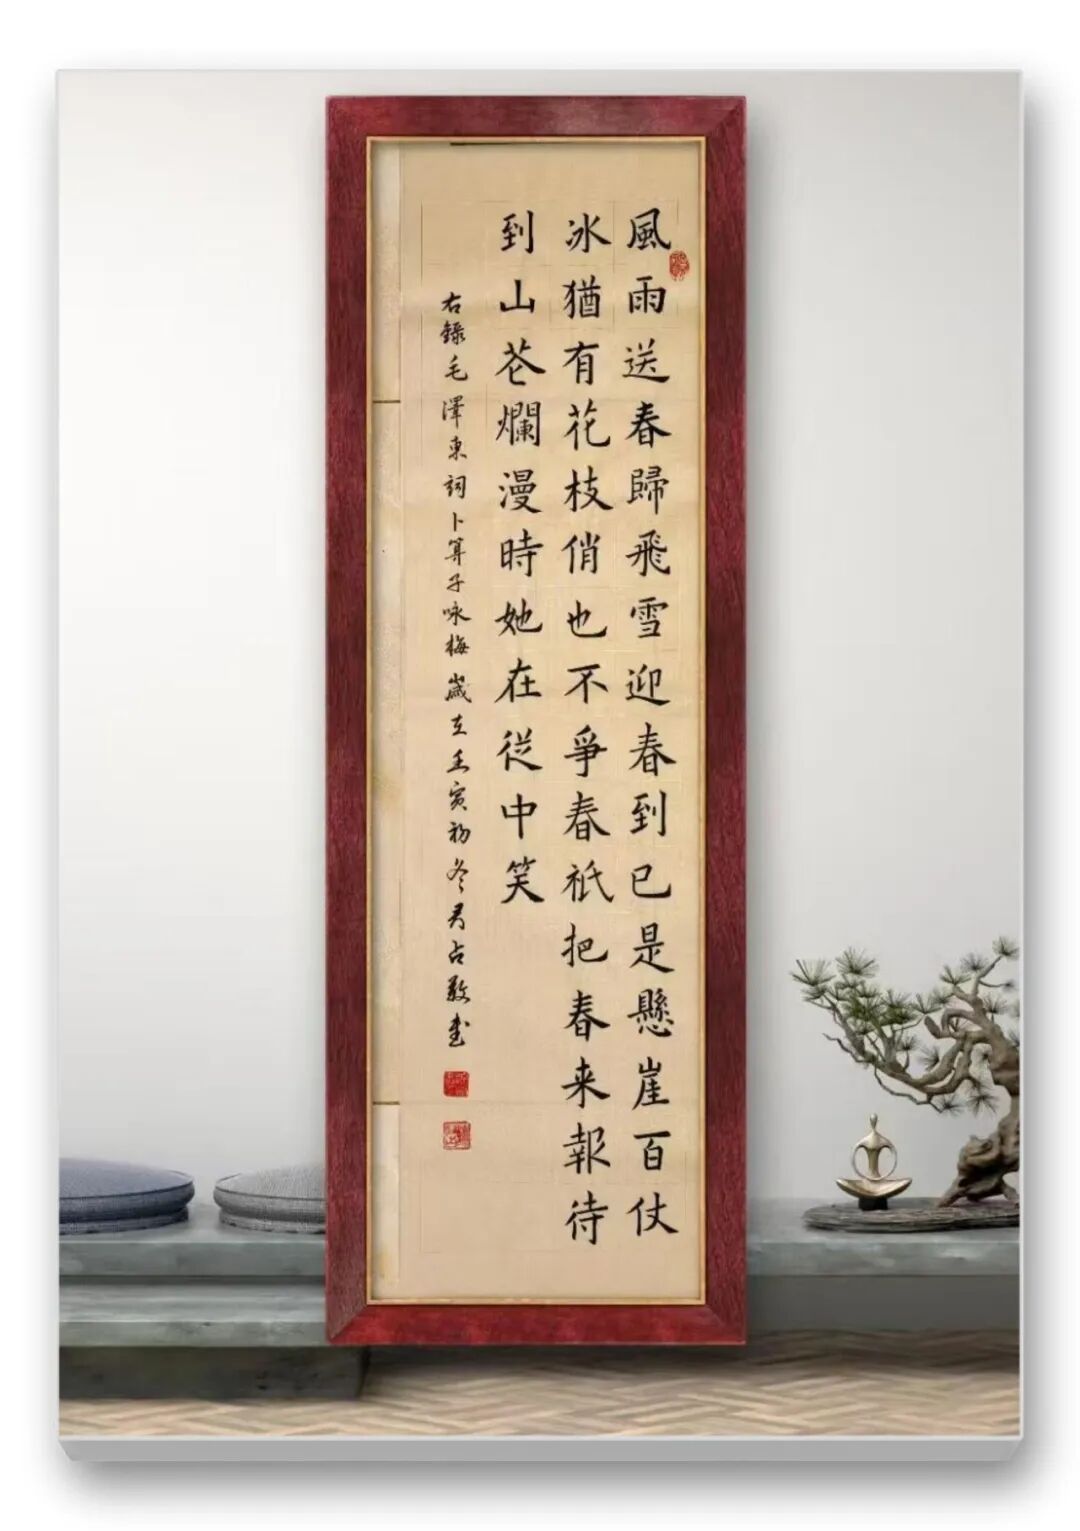 風雨送春歸飛雪迎春到已是懸崖百仗
冰猶有花枝俏也不爭春祇把春来報待
到山花爛漫時她在從中笑
右錄毛澤東詞卜算子咏梅歲在壬寅初冬君占敬書